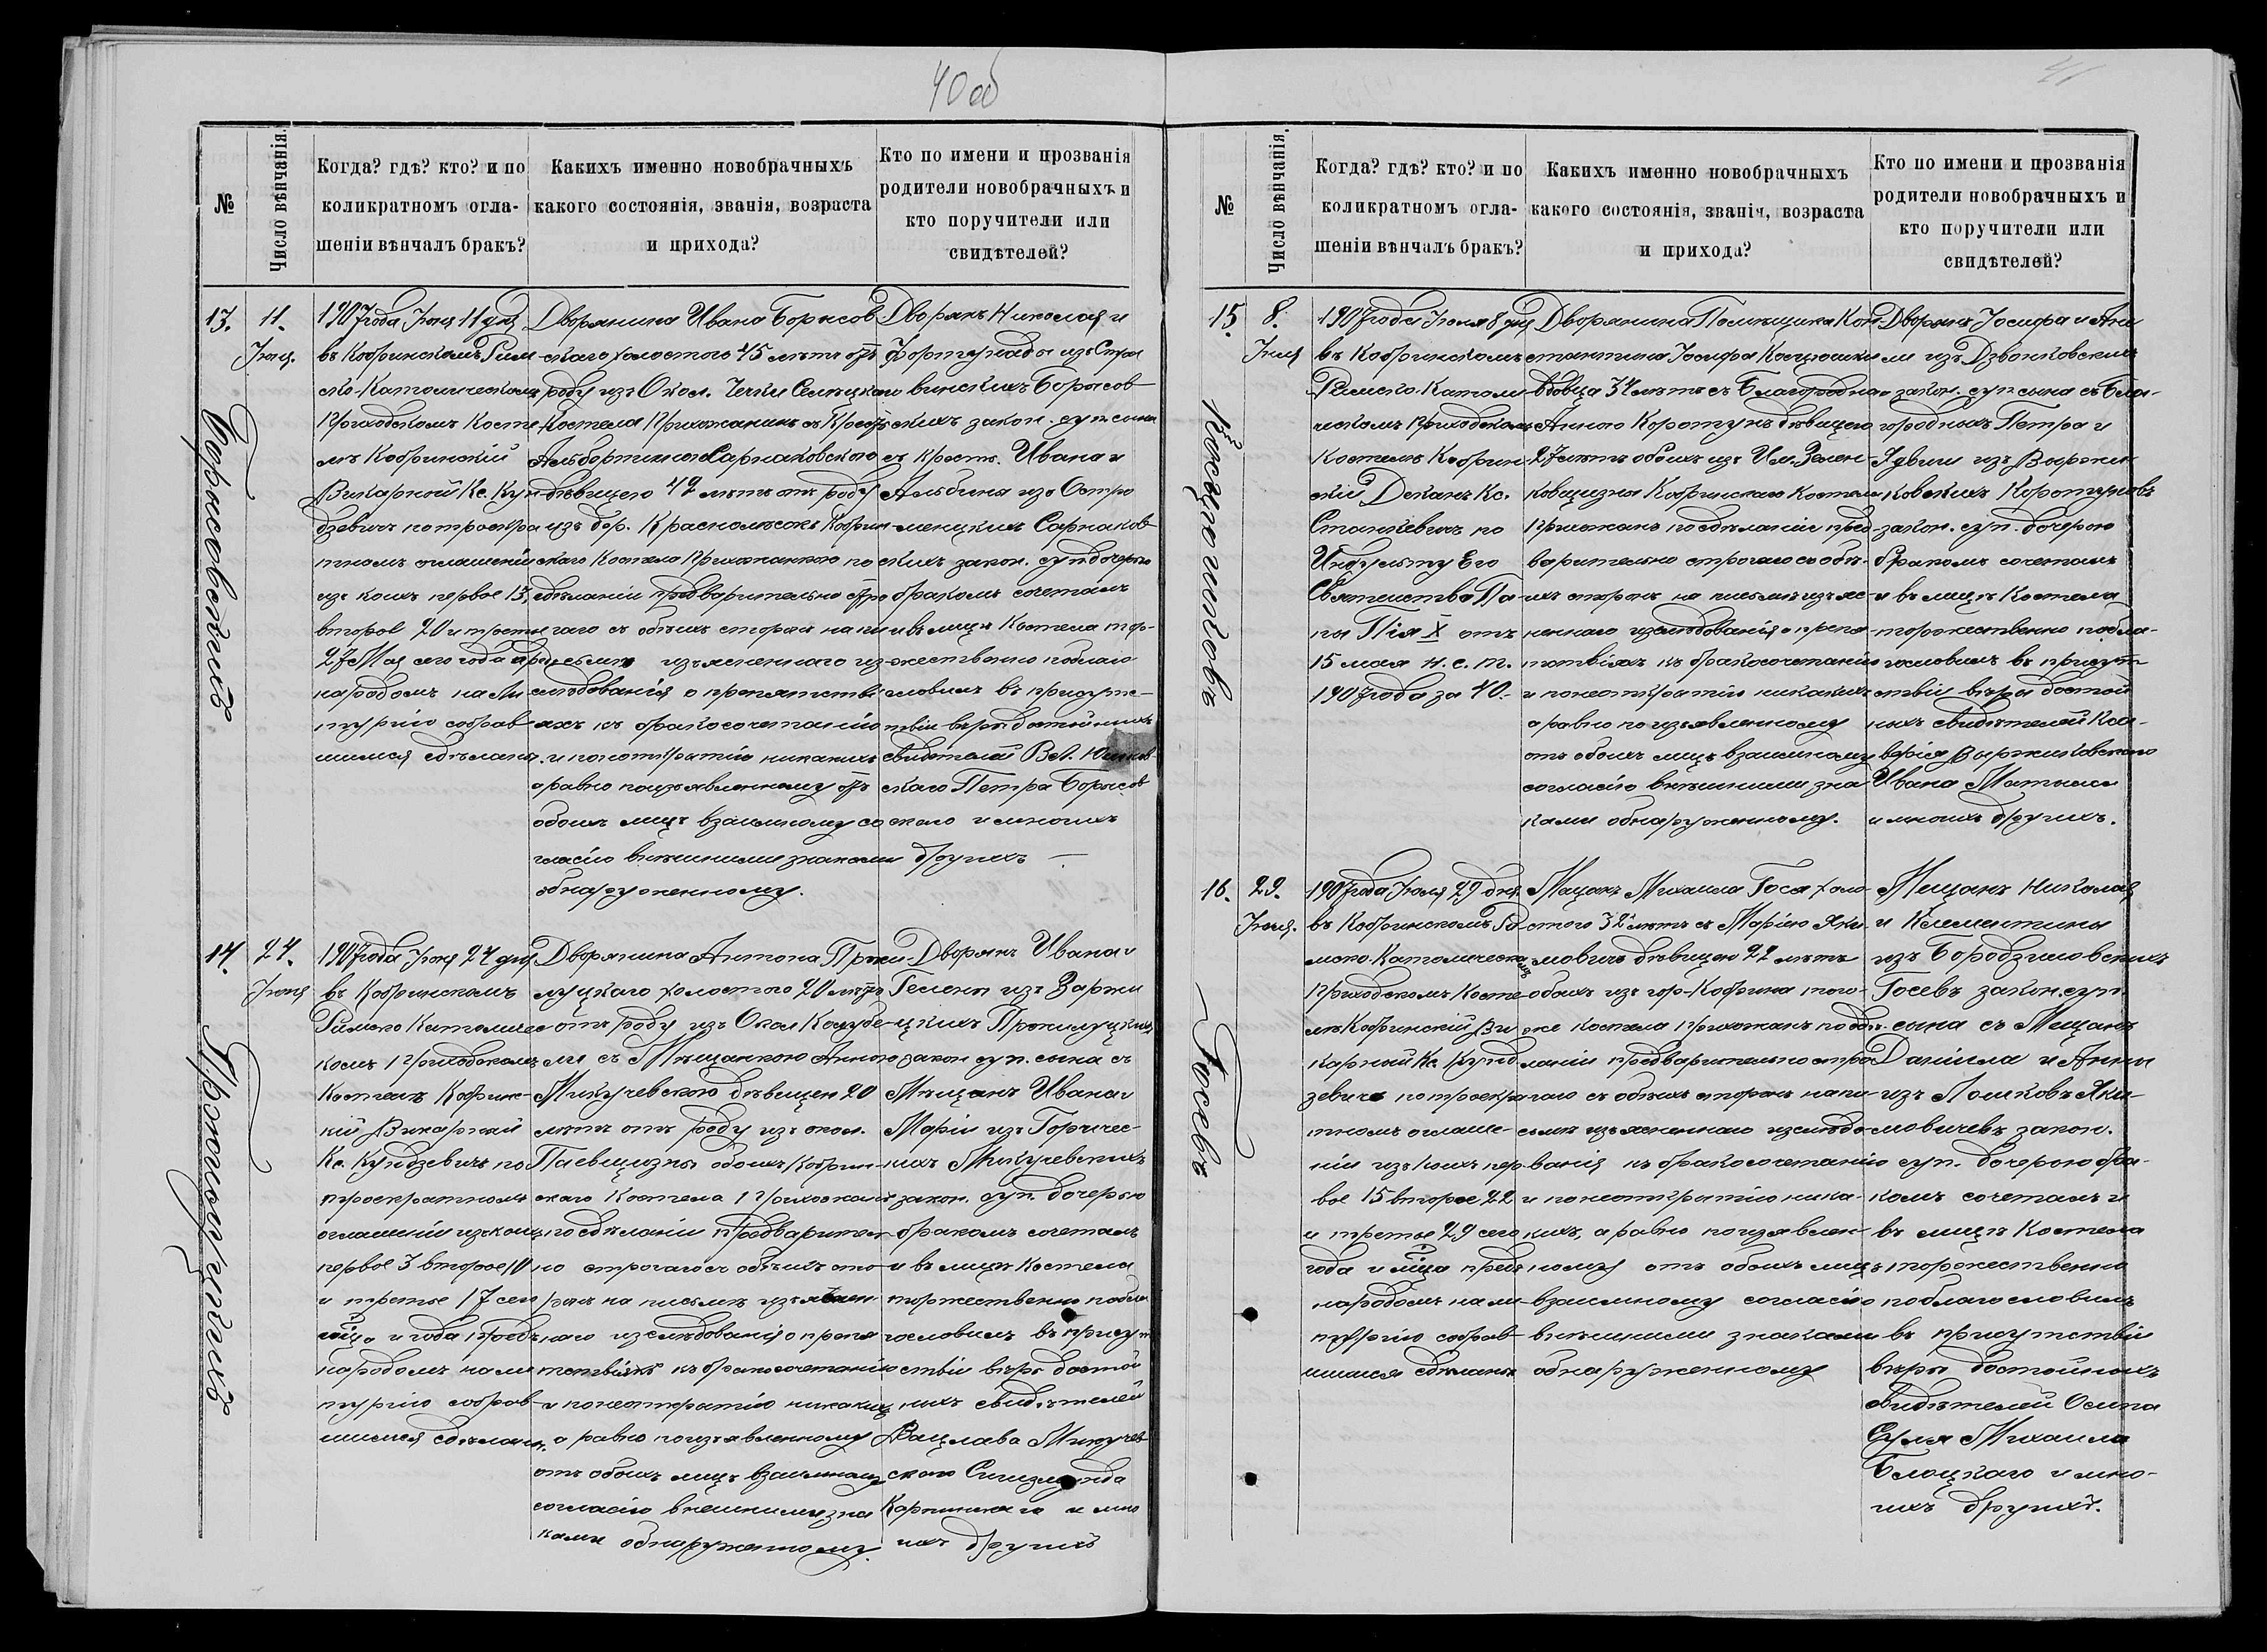 40 об
№
Число вѣнчанія.
Когда? гдѣ? кто? и по
коликратномъ огла-
шеніи вѣнчалъ бракъ?
Какихъ именно новобрачныхъ
какого состоянія, званія, возраста
и прихода?
Кто по имени и прозванія
родители новобрачныхъ и
кто поручители или
свидѣтелей?
13.
11.
Іюня.
Борысовскихъ
1907 года Іюня 11 дня
въ Кобринскомъ Рим
ско-Католическомъ
Приходскомъ Косте
лѣ Кобринскій
Викарный Кс. Кун
дзевичъ по троекра
тномъ оглашеніи
изъ коихъ первое 13,
второе 20 и третье
27 Мая сего года предъ
народомъ на Ли
тургію собрав
шимся сдѣланы.
Дворянина Ивана Борысов
скаго холостого 45 лѣтъ отъ
роду изъ Окол. Чечки Селецкаго
Костела Прихожанинъ съ Крест.
Альбертиною Сарнаковского
дѣвицею 42 лѣтъ отъ роду
изъ дер. Краснолѣсокъ Кобрин
скаго Костела Прихожанкою по
сдѣланіи предварительно стро
гаго съ обѣихъ сторонъ на пи
сьмѣ изъясненнаго из
слѣдованія о препятстві
яхъ къ бракосочетанію
и по неоткрытію никакихъ
а равно по изъявленному отъ
обоихъ лицъ взаимному со
гласію внѣшними знаками
обнаруженному.
Дворянъ Николая и
Фортунаты изъ Стра
винскихъ Борысов
скихъ закон. суп. сына
съ крест. Ивана и
Альбины изъ Остро
менцкихъ Сарнаков
скихъ закон. суп. дочерью
бракомъ сочеталъ
и въ лицѣ Костела тор-
жественно поблаго
словилъ въ присутс-
твіи вѣры достойныхъ
свидѣтелей
скаго Петра Борысов
скаго и многихъ
другихъ —
14.
24.
Іюня
Проколуцкихъ
1907 года Іюня 24 дня
въ Кобринскомъ
Римско Католичес
комъ Приходскомъ
Костелѣ Кобринс-
кій Викарный
Кс. Кундзевичъ по
троекратномъ
оглашеніи изъ коихъ
первое 3 второе 10
и третье 17 сего
мца и года предъ
народомъ на ли
тургію собрав-
шимся сдѣланы.
Дворянина Антона Проко-
луцкаго холостого 20 лѣтъ
отъ роду изъ Окол Колубе-
ли съ Мѣщанкою Анною
Микучевскою дѣвицею 20
лѣтъ отъ роду изъ окол.
Паевщизны обоихъ Кобрин-
скаго Костела Прихожанъ
по сдѣланіи предварител
но строгаго съ обѣихъ сто-
ронъ на письмѣ изъяснен-
наго изслѣдованія о препя
тствіяхъ къ бракосочетанію
и по неоткрытію никакихъ
а равно по изъявленному
отъ обоихъ лицъ взаимному
согласію внѣшними зна
ками обнаруженному.
Дворянъ Ивана и
Гелены изъ Заржи
цкихъ Проколуцкихъ
закон суп. сына съ
Мѣщанъ Ивана и
Маріи изъ Горичес-
кихъ Микучевскихъ
закон. суп. дочерью
бракомъ сочеталъ
и въ лицѣ Костела
торжественно побла
гословилъ въ присут
ствіи вѣры достой
ныхъ свидѣтелей
Вацлава Микучев
скаго Сигизмунда
Карпинскаго и мно
ихъ другихъ
41
№
Число вѣнчанія.
Когда? гдѣ? кто? и по
коликратномъ огла-
шеніи вѣнчалъ бракъ?
Какихъ именно новобрачныхъ
какого состоянія, званія, возраста
и прихода?
Кто по имени и прозванія
родители новобрачныхъ и
кто поручители или
свидѣтелей?
15.
8.
Іюля
Косцюшковъ
1907 года Іюля 8 дня
въ Кобринскомъ
Римско. Католи
ческомъ Приходскомъ
Костелѣ Кобрин
скій Деканъ Кс.
Станкевичъ по
Индульту Его
Святейшства Па
пы Пія X отъ
15 мая н. с. т.
1907 года за 40.-
Дворянина Помѣщика Кон
стантина Іосифа Косцюшки
вдовца 34 лѣтъ съ Благородна
Анною Коротунъ дѣвицею
27 лѣтъ обоихъ изъ Им. Зелен-
ковщизна Кобринскаго Костела
Прихожанъ по сдѣланіи пред-
варительно строгаго съ обѣ-
ихъ сторонъ на письмѣ изъяс-
неннаго изслѣдованія о препя-
тствіяхъ къ бракосочетанію
и по неоткрытію никакихъ
а равно по изъявленному
отъ обоихъ лицъ взаимному
согласію внѣшними зна
ками обнаруженному.
Дворянъ Іосифа и Ани
ли изъ Дзвонковскихъ
закон. суп сына съ Бла-
городныхъ Петра и
Ядвиги изъ Выржи-
ковскихъ Коротуновъ
закон. суп. дочерью
бракомъ сочеталъ
и въ лицѣ Костела
торжественно побла-
гословилъ въ присут
ствіи вѣры достой
ныхъ свидѣтелей Кса-
верія Выржиковскаго
Ивана Матыса
и многихъ другихъ.
16.
29.
Іюля.
Госевъ
1907 года Іюля 29 дня
въ Кобринскомъ Ри
мско. Католическомъ
Приходскомъ Косте
лѣ Кобринскій Ви
карный Кс. Кунд
зевичъ по троекра
тномъ оглаше-
ніи изъ коихъ пер
вое 15 второе 22
и третье 29 сего
года и мца предъ
народомъ на ли-
тургію собрав-
шимся сдѣланы
Мѣщанъ Михаила Гося холо
стого 32 лѣтъ съ Маріею Яки.
мовичъ дѣвицею 22 лѣтъ
обоихъ изъ гор-Кобрина того-
же костела прихожанъ по сдѣ-
ланіи предварительно стро
гаго съ обѣихъ сторонъ на пи-
сьмѣ изъясненнаго изслѣдо
ванія къ бракосочетанію
и по неоткрытію ника-
кихъ, а равно по изъявлен-
ному отъ обоихъ лицъ
взаимному согласію
внѣшними знаками
обнаруженному
Мещанъ Николая
и Клементины
изъ Бородзиловскихъ
Госевъ закон. суп.
сына съ Мещанъ
Даніила и Анны
изъ Ломиковъ Яки-
мовичевъ закон.
суп. дочерью бра-
комъ сочеталъ и
въ лицѣ Костела
торжественно
поблагословилъ
въ присутствіи
вѣры достойныхъ
свидѣтелей Осипа
Суля Михаила
Блоцкаго и мно-
гихъ другихъ.